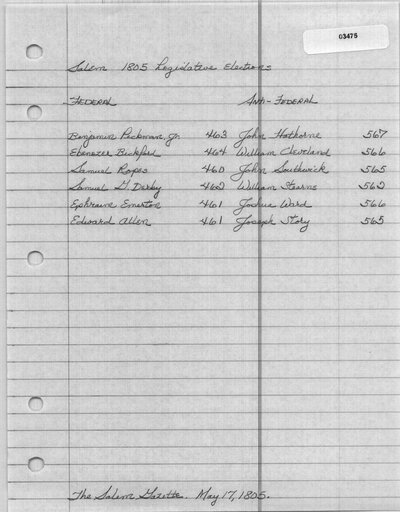 03475
Salem 1805 Legislative Elections
Federal Anti-Federal
Benjamin Pickman, Jr. 463 John Hathorne 567
Ebenezer Bickford 464 William Cleveland 566
Samuel Ropes 460 John Southwick 565
Samuel G. Derby 462 William Stearns 562
Ephraim Emerton 461 Joshua Ward 566
Edward Allen 461 Joseph Story 565
The Salem Gazette. May 17, 1805.